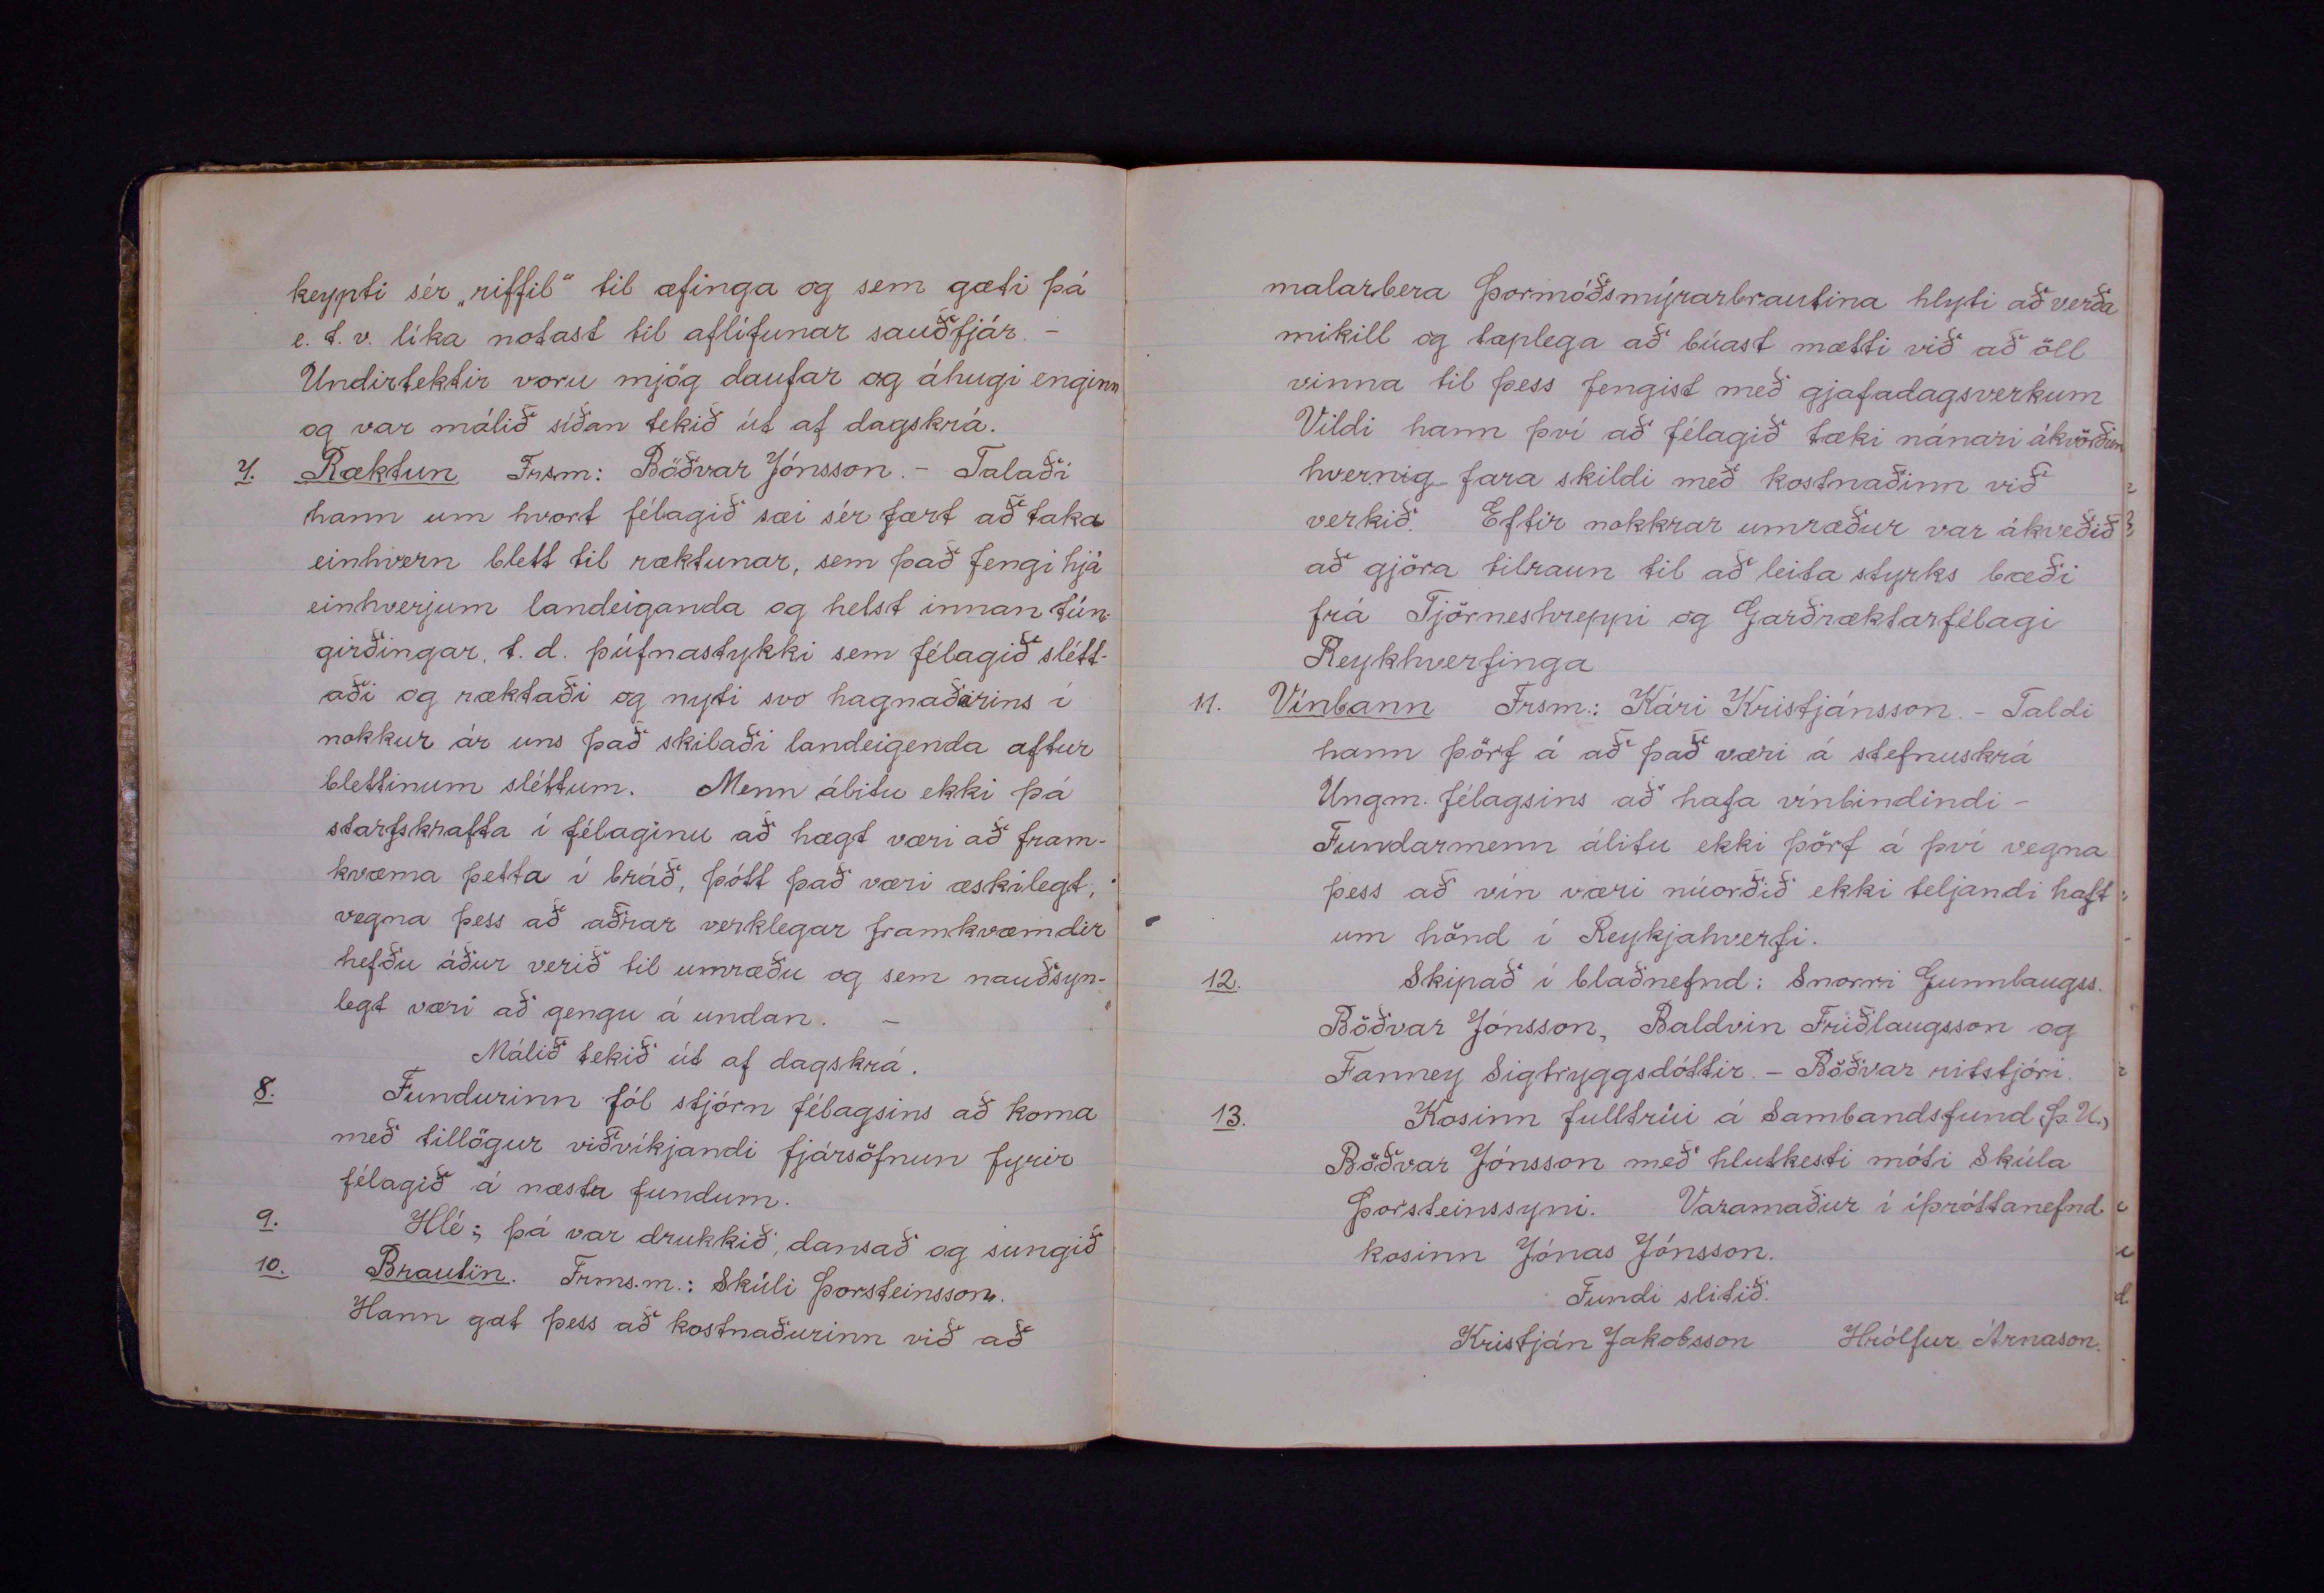 keypti sér „riffil“ til æfinga og sem gæti þá
e. t. v. líka notast til aflífunar sauðfjár. -
Undirtektir voru mjög daufar og áhugi enginn
og var málið síðan tekið út af dagskrá.
7. Ræktun Frsm: Böðvar Jónsson. - Talaði
hann um hvort félagið sæi sér fært að taka
einhvern blett til ræktunar, sem það fengi hjá
einhverjum landeiganda og helst innan tún-
girðingar, t. d. þúfnastykki sem félagið slétt-
aði og ræktaði og nyti svo hagnaðarins í
nokkur ár uns það skilaði landeigenda aftur
blettinum sléttum. Menn álitu ekki þá
starfskrafta í félaginu að hægt væri að fram-
kvæma þetta í bráð, þótt það væri æskilegt,
vegna þess að aðrar verklegar framkvæmdir
hefðu áður verið til umræðu og sem nauðsyn-
legt væri að gengu á undan. -
Málið tekið út af dagskrá.
8. Fundurinn fól stjórn félagsins að koma
með tillögur viðvíkjandi fjársöfnun fyrir
félagið á næstu fundum.
9. Hlé; þá var drukkið, dansað og sungið
10. Brautin. Frms.m.: Skúli Þorsteinsson.
Hann gat þess að kostnaðurinn við að
malarbera Þormóðsmýrarbrautina hlyti að verða
mikill og tæplega að búast mætti við að öll
vinna til þess fengist með gjafadagsverkum
Vildi hann því að félagið tæki nánari ákvörðun
hvernig fara skildi með kostnaðinn við
verkið. Eftir nokkrar umræður var ákveðið
að gjöra tilraun til að leita styrks bæði
frá Tjörneshreppi og Garðræktarfélagi
Reykhverfinga
11. Vínbann Frsm.: Kári Kristjánsson. - Taldi
hann þörf á að það væri á stefnuskrá
Ungm. félagsins að hafa vínbindindi -
Fundarmenn álitu ekki þörf á því vegna
þess að vín væri núorðið ekki teljandi haft
um hönd í Reykjahverfi.
12. Skipað í blaðnefnd: Snorri Gunnlaugss.
Böðvar Jónsson, Baldvin Friðlaugsson og
Fanney Sigtryggsdóttir. - Böðvar ritstjóri.
13. Kosinn fulltrúi á Sambandsfund (Þ.U.)
Böðvar Jónsson með hlutkesti móti Skúla
Þorsteinssyni. Varamaður í íþróttanefnd
kosinn Jónas Jónsson.
Fundi slitið.
Kristján Jakobsson Hrólfur Árnason.